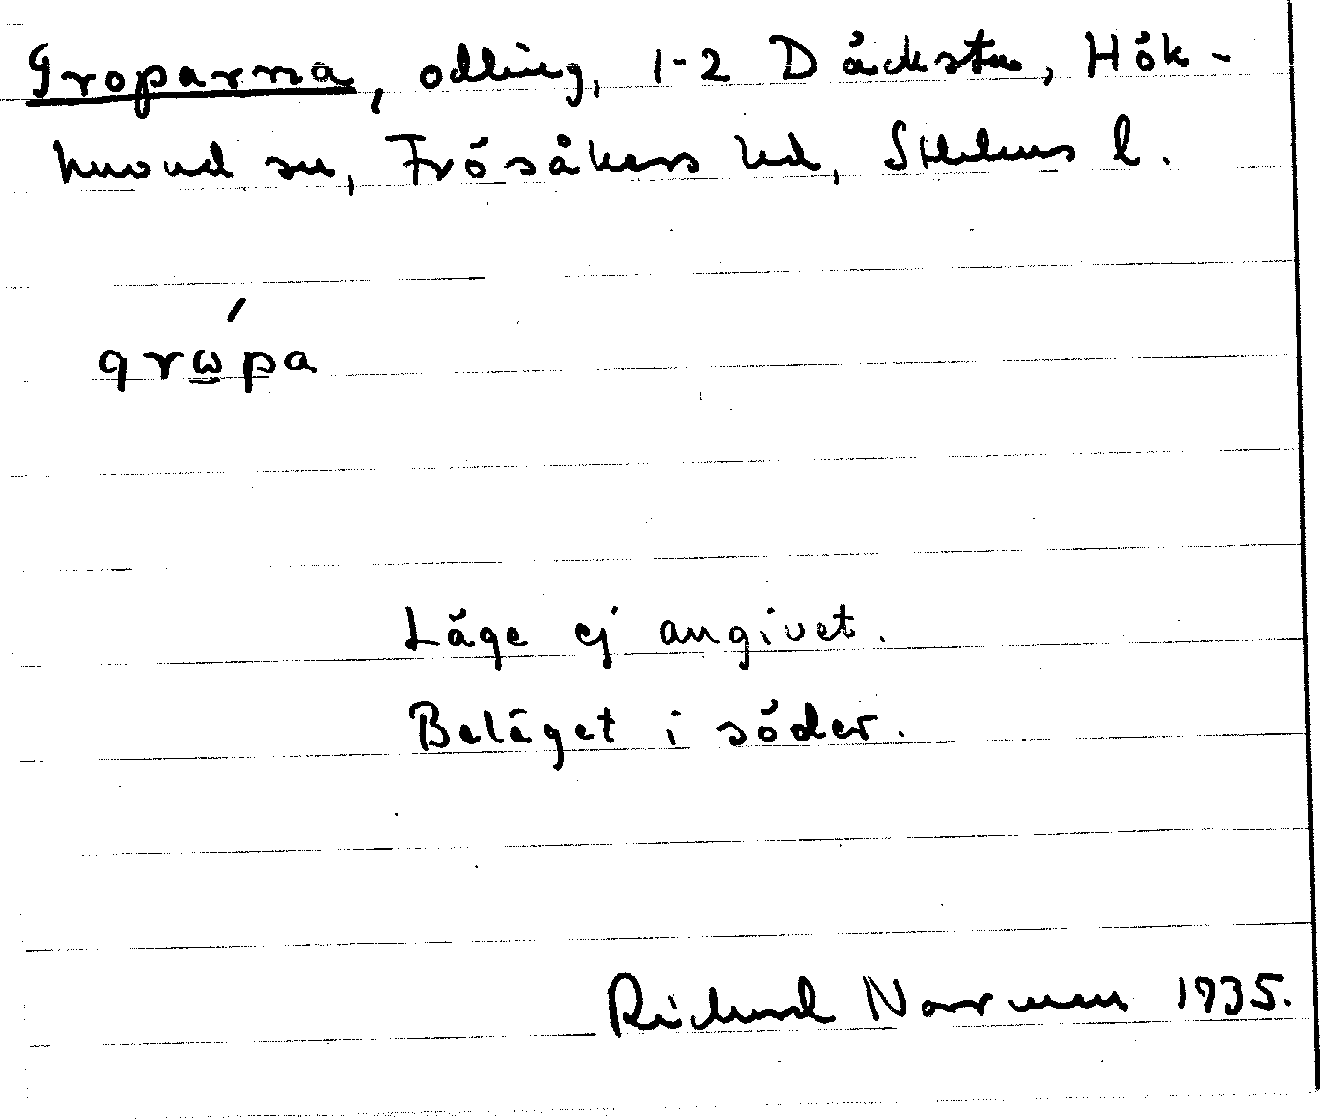 Groparna, odling, 1-2 Däcksta, Hök-
huvud sn, Frösåkers hd, Sthlms l.
grώpa
Läge ej angivet.
Beläget i söder.
Richard Norrman 1935.